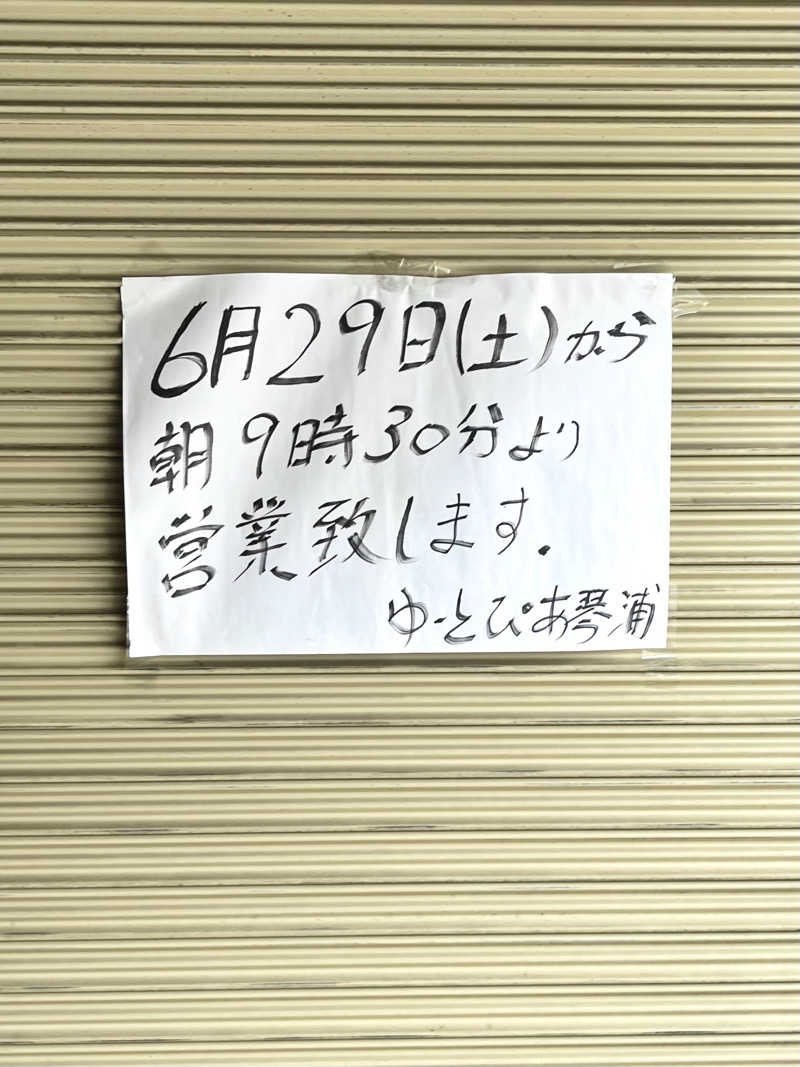 6月29日(土)から
朝9時30分より
営業致します.
ゆーとぴあ琴浦